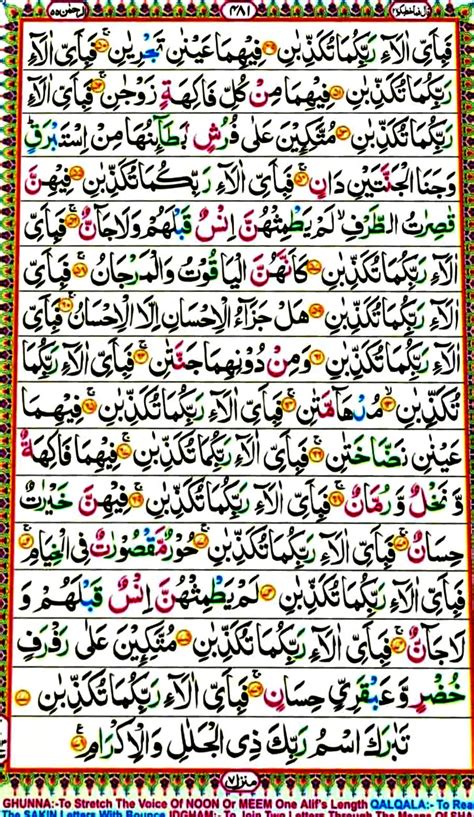 قال فما خطبكم ۲۷ ۴۸۱ الرحمن ۵۵
فَبِاَیِّ اٰلَآءِ رَبِّكُمَا تُكَذِّبٰنِ ۴۹ فِیْهِمَا عَیْنٰنِ تَجْرِیٰنِ ۵۰ فَبِاَیِّ اٰلَآءِ
رَبِّكُمَا تُكَذِّبٰنِ ۵۱ فِیْهِمَا مِنْ كُلِّ فَاكِهَةٍ زَوْجٰنِ ۵۲ فَبِاَیِّ اٰلَآءِ
رَبِّكُمَا تُكَذِّبٰنِ ۵۳ مُتَّكِـِٕیْنَ عَلٰی فُرُشٍۭ بَطَآىِٕنُهَا مِنْ اِسْتَبْرَقٍؕ
وَجَنَا الْجَنَّتَیْنِ دَانٍ ۵۴ فَبِاَیِّ اٰلَآءِ رَبِّكُمَا تُكَذِّبٰنِ ۵۵ فِیْهِنَّ
قٰصِرٰتُ الطَّرْفِۙ لَمْ یَطْمِثْهُنَّ اِنْسٌ قَبْلَهُمْ وَلَا جَآنٌّ ۵۶ فَبِاَیِّ
اٰلَآءِ رَبِّكُمَا تُكَذِّبٰنِ ۵۷ كَاَنَّهُنَّ الْیَاقُوْتُ وَالْمَرْجَانُ ۵۸ فَبِاَیِّ
اٰلَآءِ رَبِّكُمَا تُكَذِّبٰنِ ۵۹ هَلْ جَزَآءُ الْاِحْسَانِ اِلَّا الْاِحْسَانُ ۶۰ فَبِاَیِّ
اٰلَآءِ رَبِّكُمَا تُكَذِّبٰنِ ۶۱ وَمِنْ دُوْنِهِمَا جَنَّتٰنِ ۶۲ فَبِاَیِّ اٰلَآءِ رَبِّكُمَا
تُكَذِّبٰنِ ۶۳ مُدْهَآمَّتٰنِ ۶۴ فَبِاَیِّ اٰلَآءِ رَبِّكُمَا تُكَذِّبٰنِ ۶۵ فِیْهِمَا
عَیْنٰنِ نَضَّاخَتٰنِ ۶۶ فَبِاَیِّ اٰلَآءِ رَبِّكُمَا تُكَذِّبٰنِ ۶۷ فِیْهِمَا فَاكِهَةٌ
وَّنَخْلٌ وَّرُمَّانٌ ۶۸ فَبِاَیِّ اٰلَآءِ رَبِّكُمَا تُكَذِّبٰنِ ۶۹ فِیْهِنَّ خَیْرٰتٌ
حِسَانٌ ۷۰ فَبِاَیِّ اٰلَآءِ رَبِّكُمَا تُكَذِّبٰنِ ۷۱ حُوْرٌ مَّقْصُوْرٰتٌ فِی الْخِیَامِ ۷۲
فَبِاَیِّ اٰلَآءِ رَبِّكُمَا تُكَذِّبٰنِ ۷۳ لَمْ یَطْمِثْهُنَّ اِنْسٌ قَبْلَهُمْ وَ
لَا جَآنٌّ ۷۴ فَبِاَیِّ اٰلَآءِ رَبِّكُمَا تُكَذِّبٰنِ ۷۵ مُتَّكِـِٕیْنَ عَلٰی رَفْرَفٍ
خُضْرٍ وَّعَبْقَرِیٍّ حِسَانٍ ۷۶ فَبِاَیِّ اٰلَآءِ رَبِّكُمَا تُكَذِّبٰنِ ۷۷
تَبٰرَكَ اسْمُ رَبِّكَ ذِی الْجَلٰلِ وَالْاِكْرَامِ ۷۸
منزل ۷
GHUNNA:-To Stretch The Voice Of NOON Or MEEM One Alif's Length QALQALA:- To Rea
The SAKIN Letters With Bounce IDGHAM:- To Join Two Letters Through The Means Of SH